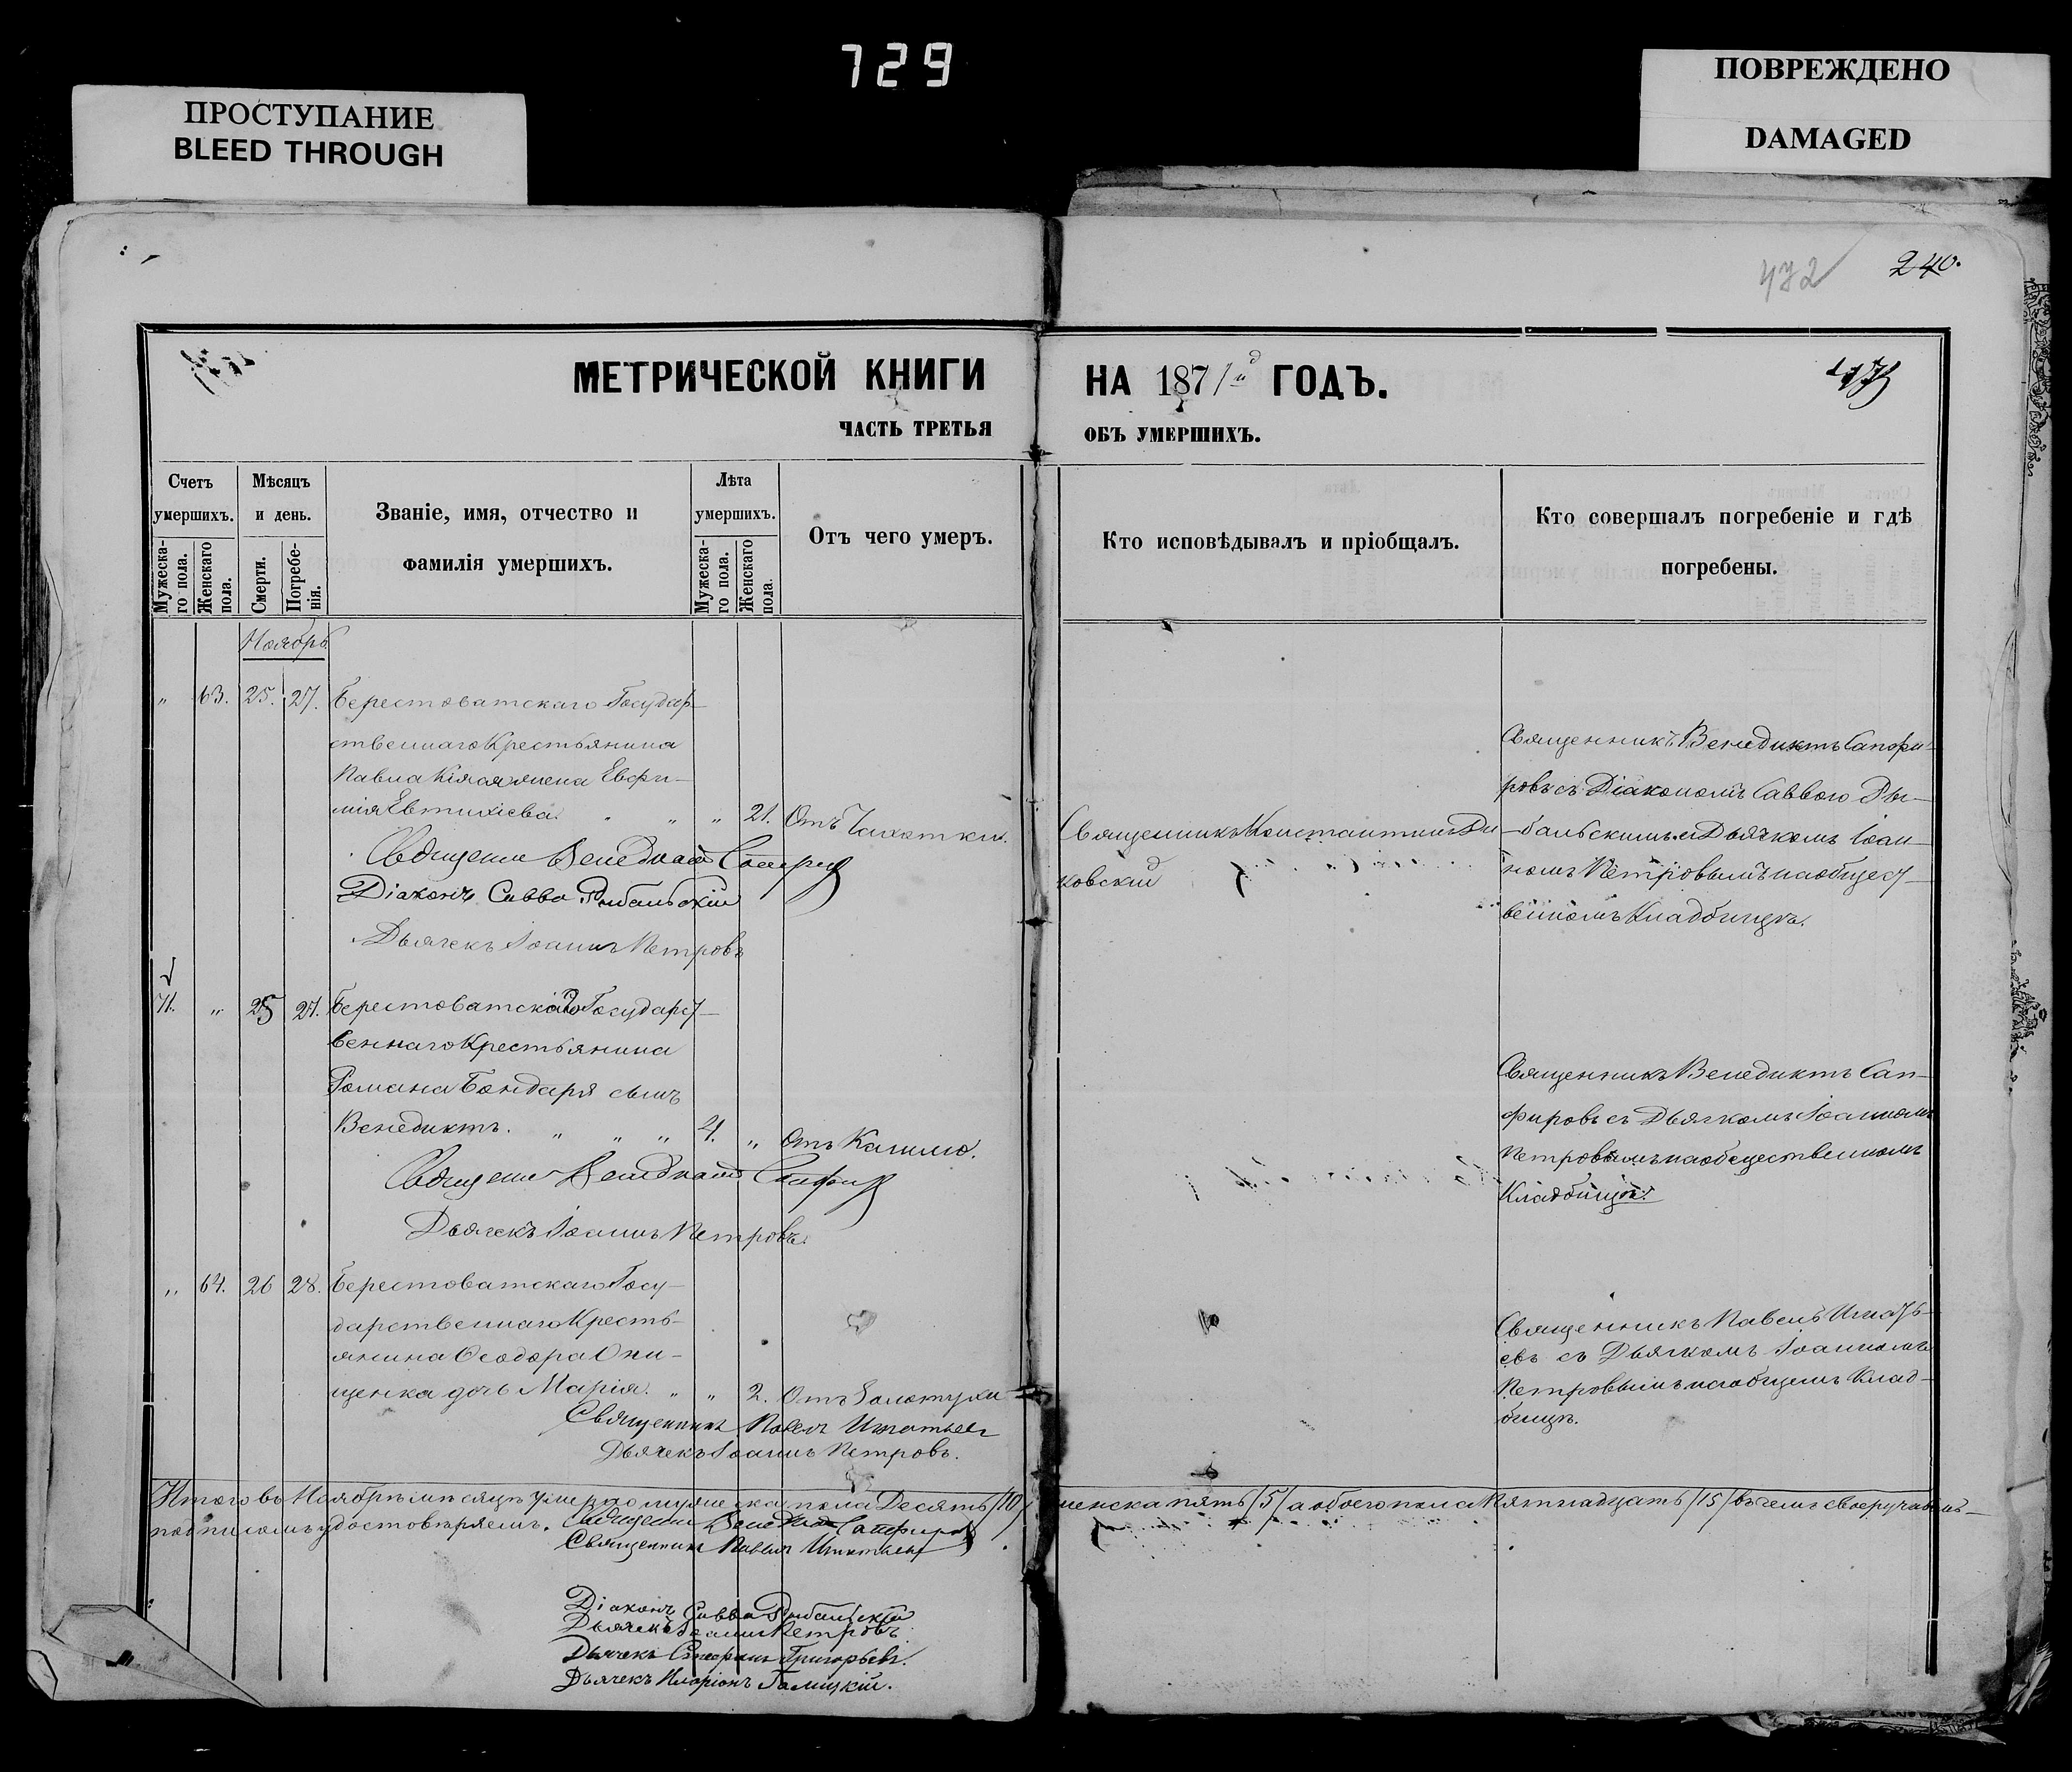 729
ПРОСТУПАНИЕ
BLEED THROUGH
ПОВРЕЖДЕНО
DAMAGED
472
240.
МЕТРИЧЕСКОЙ КНИГИ
НА 1871й ГОДЪ.
ЧАСТЬ ТРЕТЬЯ
ОБЪ УМЕРШИХЪ.
Счетъ умершихъ.
Мужеска-го пола.
Женскаго пола.
Мѣсяцъ и день.
Смерти.
Погребе-нія.
Званіе, имя, отчество и
фамилія умершихъ.
Лѣта умершихъ.
Мужеска-го пола.
Женскаго пола.
Отъ чего умеръ.
Кто исповѣдывалъ и пріобщалъ.
Кто совершалъ погребеніе и гдѣ
погребены.
Ноябрь
„ 63. 25. 27. Берестоватскаго Государ-
ственнаго Крестьянина
Павла жена Евфи-
мія Евтихіева. „ „ „ 21. Отъ Чахотки.
Священникъ Венедиктъ Сапфировъ
Діаконъ Савва Рыбальскій
Дьячекъ Іоаннъ Петровъ
Священникъ Константинъ Ди-
ковскій
Священникъ Венедиктъ Сапфи-
ровъ съ Діакономъ Саввою Ры-
бальскимъ и Дьячкомъ Іоан-
номъ Петровымъ на общест-
венномъ Кладбищѣ.
71. „ 25 27. Берестоватскаго Государст-
веннаго Крестьянина
Романа Бондаря сынъ
Венедиктъ. „ „ „ 4. „ Отъ Кашлю.
Священникъ Венедиктъ Сапфиръ
Дьячекъ Іоаннъ Петровъ.
Священникъ Венедиктъ Сап-
фировъ съ Дьячкомъ Іоанномъ
Петровымъ на общественномъ
Кладбищѣ.
„ 64. 26 28. Берестоватскаго Госу-
дарственнаго Кресть-
янина Ѳеодора Они-
щенка дочь Марія. „ „ 2. Отъ Золотухи
Священникъ Павелъ Игнатьевъ
Дьячекъ Іоаннъ Петровъ.
Священникъ Павелъ Игнать-
евъ съ Дьячкомъ Іоанномъ
Петровымъ на общемъ Клад-
бищѣ.
Итого въ Ноябрѣ мѣсяцѣ умерло мужеска пола Десять /10/ женска пять /5/ а обоего пола Пятнадцать /15/ въ чемъ своеручнымъ
подписомъ удостовѣряемъ. Священникъ Венедиктъ Сапфировъ
Священникъ Павелъ Игнатьевъ
Діаконъ Савва Рыбальскій
Дьячекъ Іоаннъ Петровъ
Дьячекъ Стефанъ Григорьевъ.
Дьячекъ Иларіонъ Галицкій.